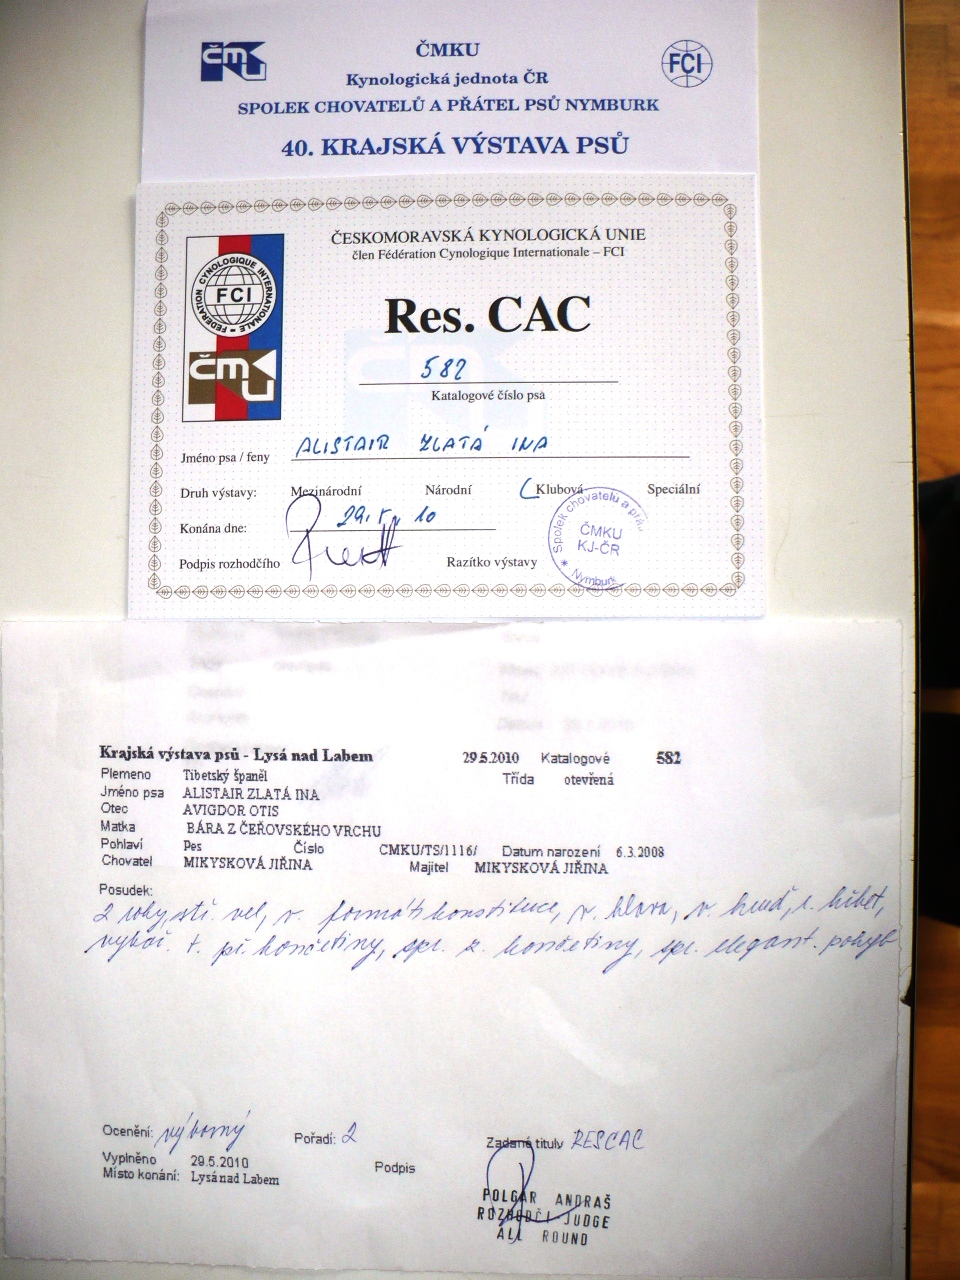 čmKU
ČMKU
FCI
Kynologická jednota ČR
SPOLEK CHOVATELŮ A PŘÁTEL PSŮ NYMBURK
40. KRAJSKÁ VÝSTAVA PSŮ
ČESKOMORAVSKÁ KYNOLOGICKÁ UNIE
člen Fédération Cynologique Internationale – FCI
FEDERATION CYNOLOGIQUE INTERNATIONALE
FCI
čmKU
Res. CAC
582
Katalogové číslo psa
Jméno psa / feny ALISTAIR ZLATÁ INA
Druh výstavy: Mezinárodní Národní Klubová Speciální
Konána dne: 29. V. 10
Podpis rozhodčího Razítko výstavy
Spolek chovatelů a přá
ČMKU
KJ-ČR
Nymburk
Krajská výstava psů - Lysá nad Labem 29.5.2010 Katalogové 582
Plemeno Tibetský španěl Třída otevřená
Jméno psa ALISTAIR ZLATÁ INA
Otec AVIGDOR OTIS
Matka BÁRA Z ČEŘOVSKÉHO VRCHU
Pohlaví Pes Číslo CMKU/TS/1116/ Datum narození 6.3.2008
Chovatel MIKYSKOVÁ JIŘINA Majitel MIKYSKOVÁ JIŘINA
Posudek:
2 roky, stř. vel, v. formát konstituce, v. hlava, v. hruď, r. hřbet,
t. př. končetiny, spr. z. končetiny, spr. elegant. pohyb
Ocenění: výborný Pořadí: 2 Zadané tituly RESCAC
Vyplněno 29.5.2010 Podpis
Místo konání: Lysá nad Labem
POLGÁR ANDRAŠ
ROZHODČÍ-JUDGE
ALL ROUND